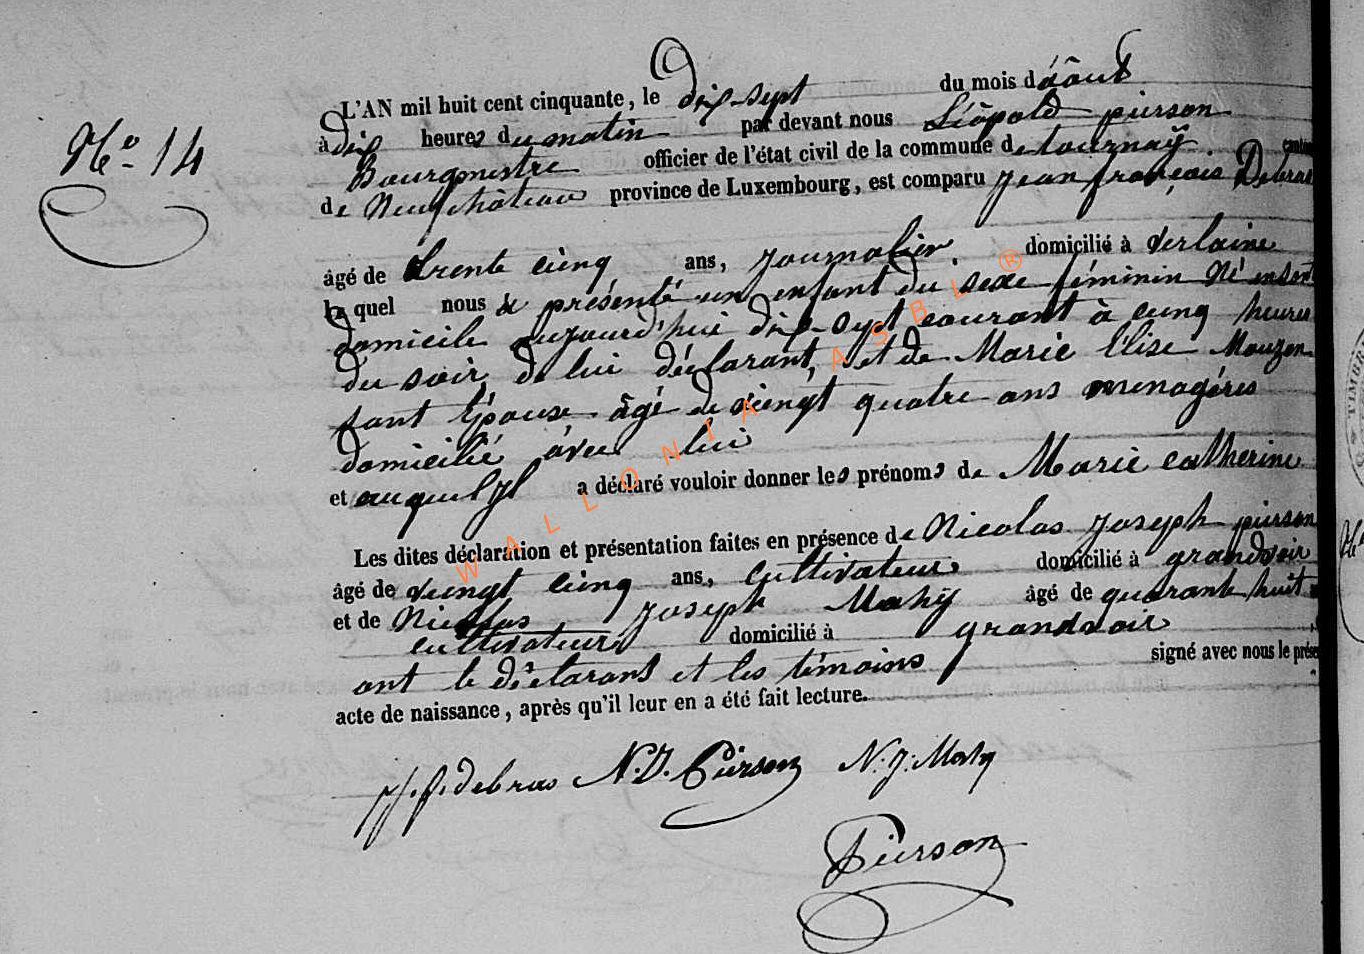 No. 14
L'AN mil huit cent cinquante, le dix-sept du mois d'août
à dix heures du matin par devant nous Léopold pierson
Bourgmestre officier de l'état civil de la commune de tournaÿ. canton
de Neufchâteau province de Luxembourg, est comparu jean françois Debras
âgé de trente cinq ans, journalier. domicilié à verlaine
le quel nous a présenté un enfant du sexe féminin Né en son
domicile aujourd'hui courant à cinq heures
du soir, de lui déclarant, et de Marie Elise Mouzon
sont épouse âgé de vingt quatre ans menagére
domicilié avec lui
et auquel il a déclaré vouloir donner les prénoms de Marie catherine
Les dites déclaration et présentation faites en présence de Nicolas joseph pierson
âgé de vingt cinq ans, cultivateur domicilié à grandvoir
et de Nicolas joseph Mahÿ âgé de quarante huit
cultivateur domicilié à grandvoir
ont le déclarant et les témoins signé avec nous le prése
acte de naissance, après qu'il leur en a été fait lecture.
j. f. debras N. J. Pierson N. J. Mahy
Pierson
WALLONIA ASBL ®
TIMBR